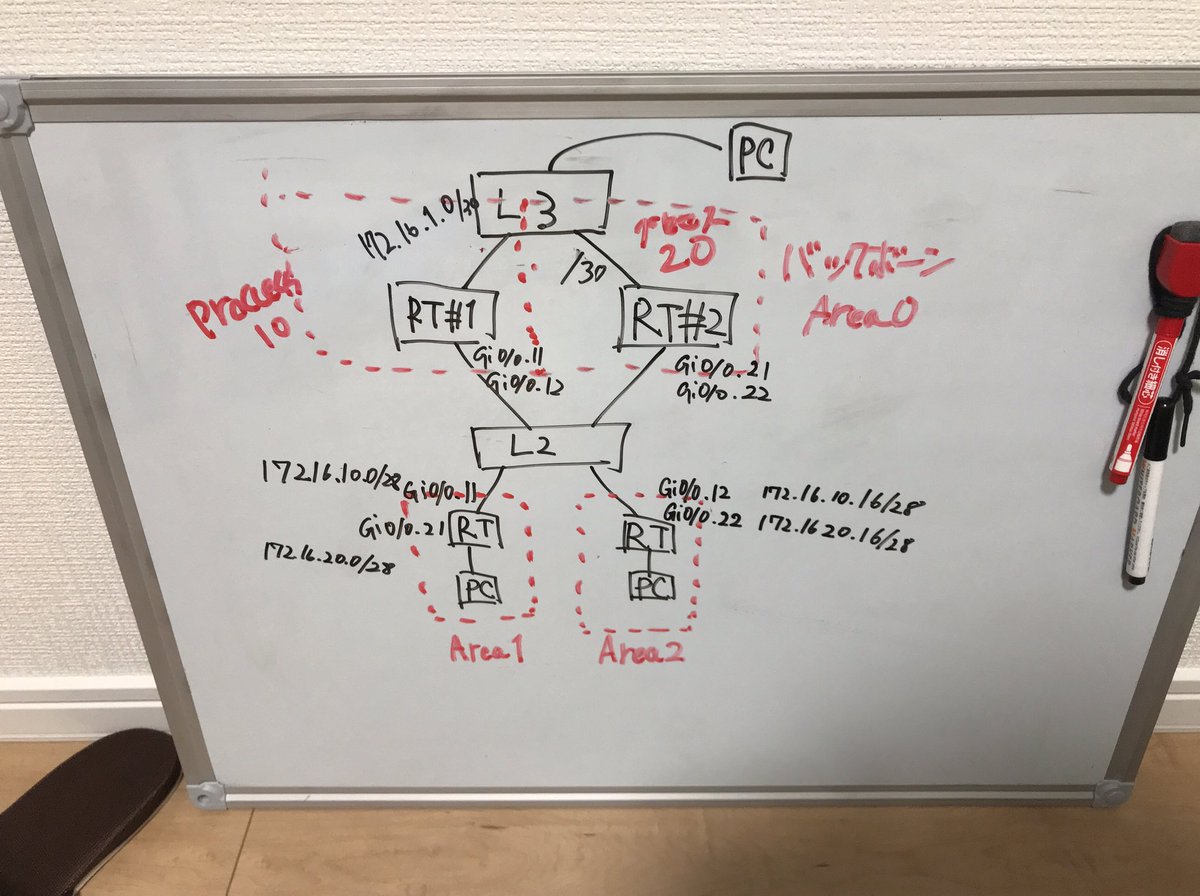 PC
L3
172.16.1.0/30
プロセス
20
バックボーン
Area0
/30
Process
10
RT#1
RT#2
Gi0/0.11
Gi0/0.12
Gi0/0.21
Gi0/0.22
L2
172.16.10.0/28
Gi0/0.11
Gi0/0.12
172.16.10.16/28
Gi0/0.21
RT
RT
Gi0/0.22
172.1620.16/28
172.16.20.0/28
PC
PC
Area1
Area2
消し付き細芯